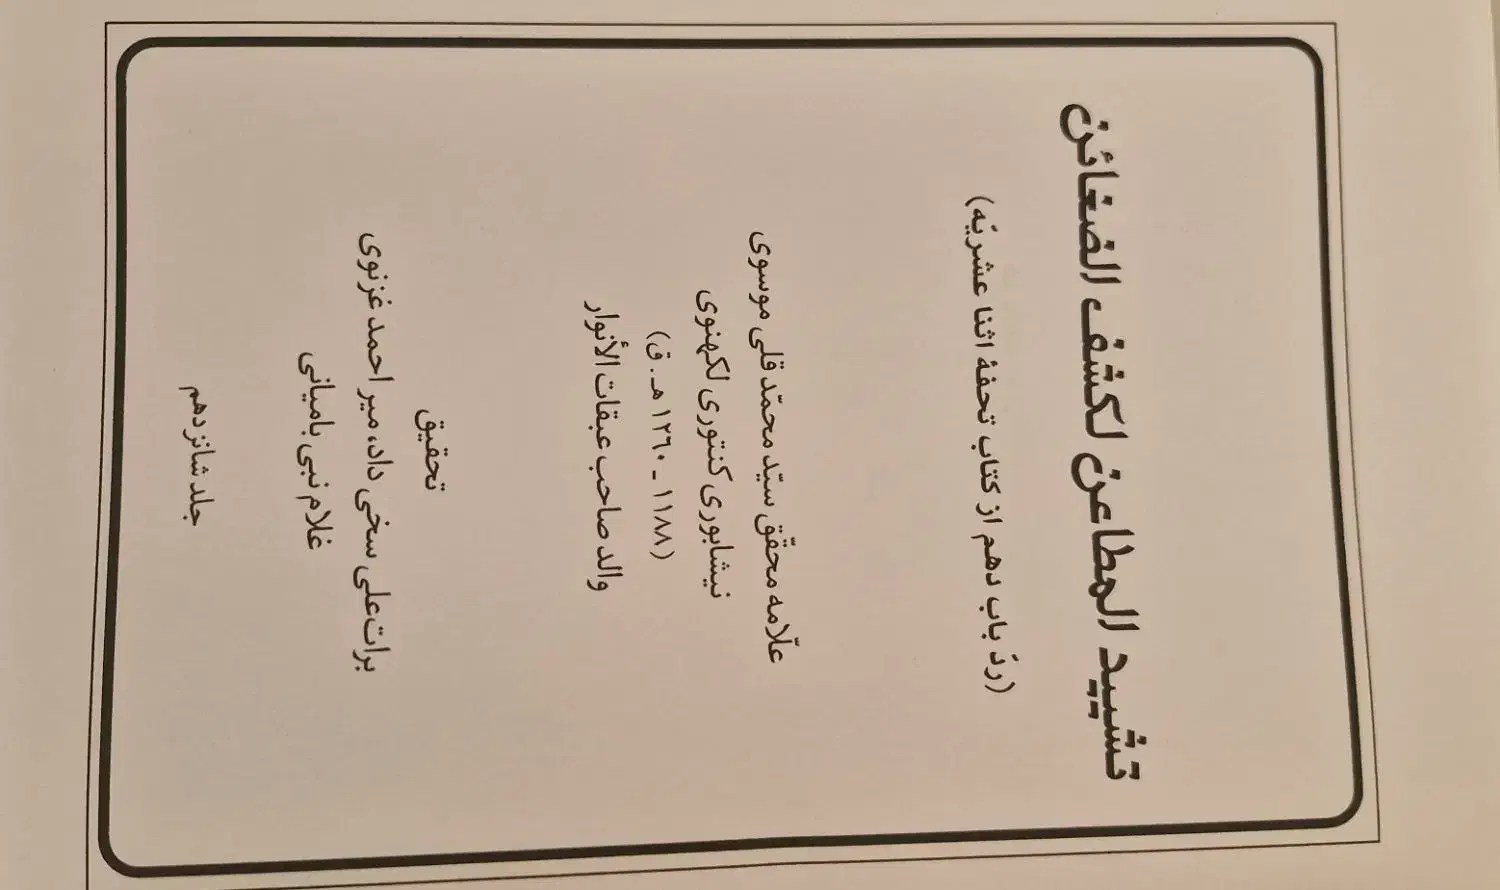 تشیید المطاعن لکشف الضغائن
(ردّ باب دهم از کتاب تحفهٔ اثنا عشریّه)
علّامه محقّق سیّد محمّد قلی موسوی
نیشابوری کنتوری لکهنوی
(۱۱۸۸ ـ ۱۲۶۰ هـ . ق)
والد صاحب عبقات الأنوار
تحقیق
برات‌علی سخی داد، میر احمد غزنوی
غلام نبی بامیانی
جلد شانزدهم